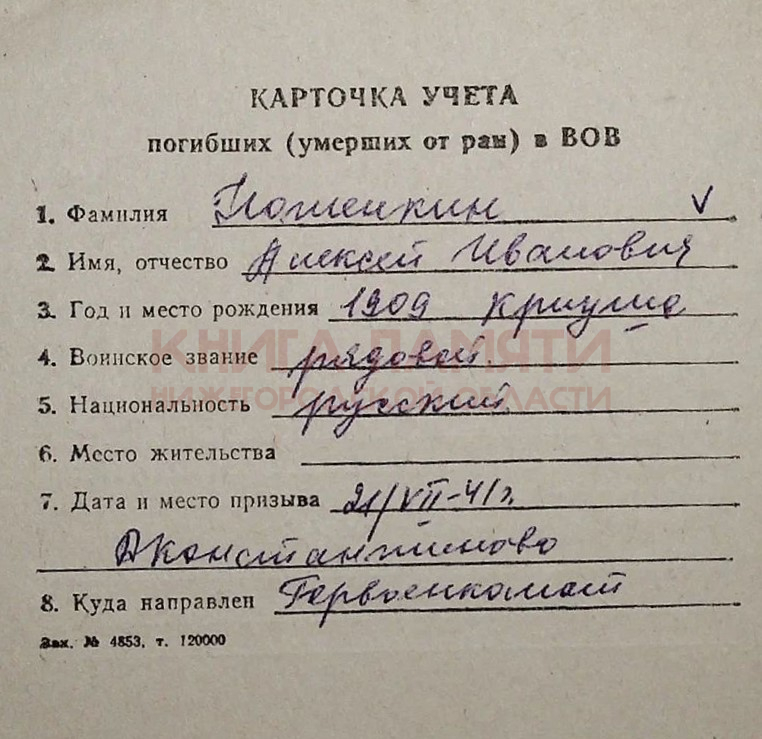 КАРТОЧКА УЧЕТА
погибших (умерших от ран) в ВОВ
1. Фамилия Потемкин V
2. Имя, отчество Алексей Иванович
3. Год и место рождения 1909 Криуша
КНИГА ПАМЯТИ
4. Воинское звание рядовой
НИЖЕГОРОДСКОЙ ОБЛАСТИ
5. Национальность русский
6. Место жительства
7. Дата и место призыва 21/VII-41 г.
Д Константиново
8. Куда направлен Горвоенкомат
Зак. № 4853, т. 120000